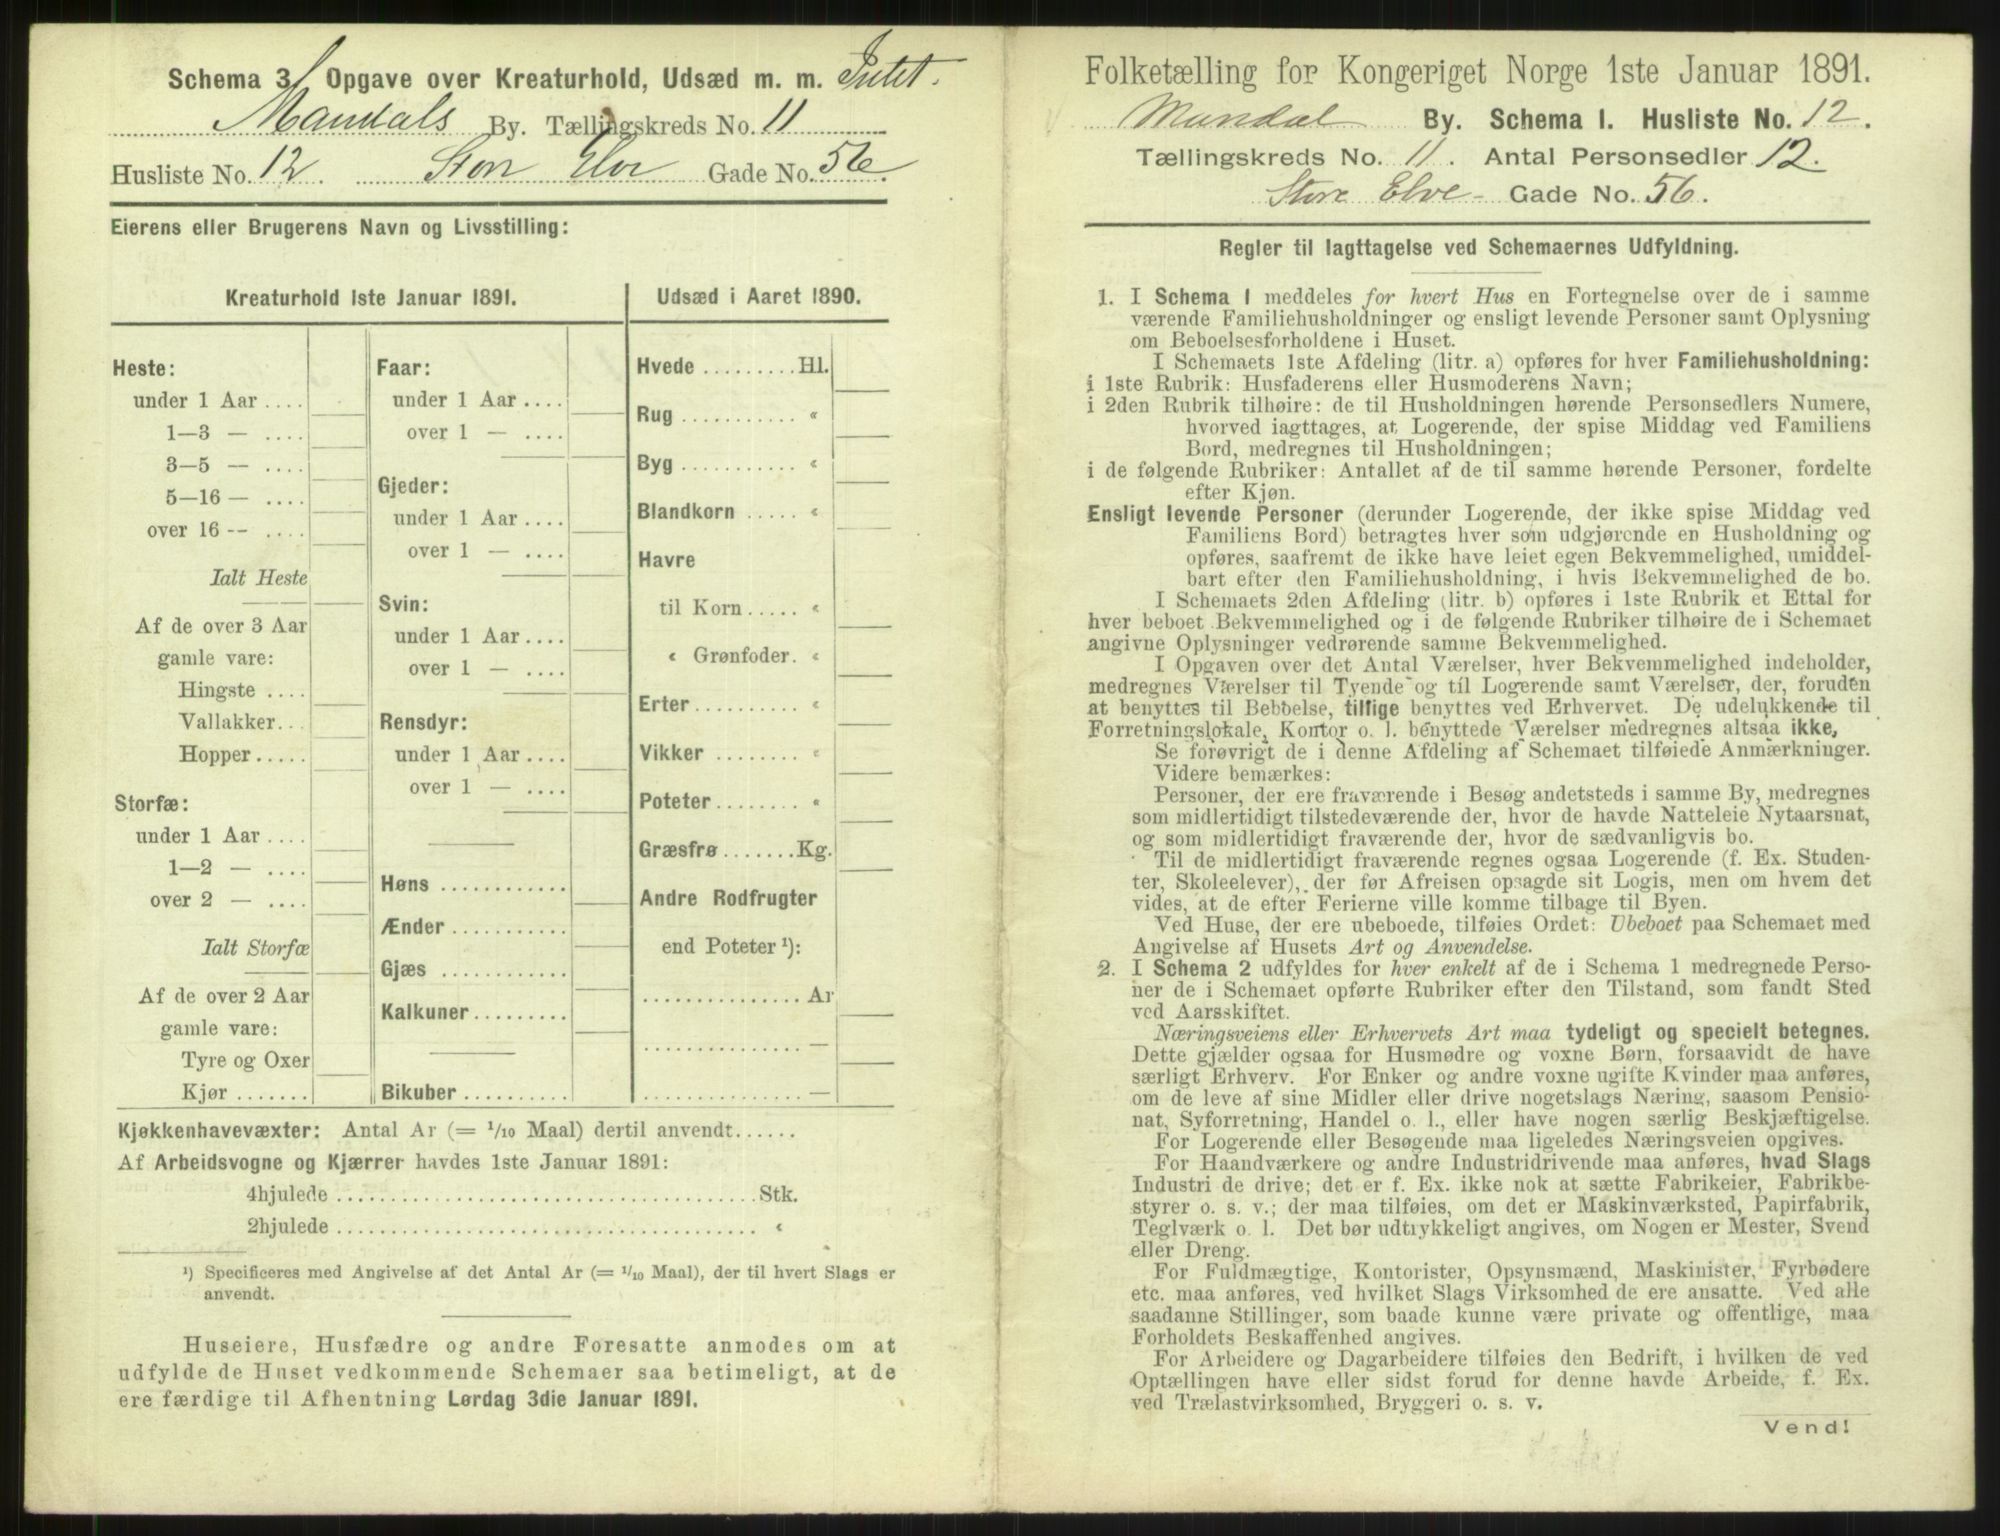 Schema 3. Opgave over Kreaturhold, Udsæd m. m. Intet.
Mandals By. Tællingskreds No. 11
Husliste No. 12. Store Elve Gade No. 56.
Eierens eller Brugerens Navn og Livsstilling:
Kreaturhold 1ste Januar 1891.
Heste:
under 1 Aar ....
1—3 — ....
3—5 — ....
5—16 — ....
over 16 -- ....
Ialt Heste
Af de over 3 Aar
gamle vare:
Hingste ....
Vallakker...
Hopper.....
Storfæ:
under 1 Aar ....
1—2 — ....
over 2 — ....
Ialt Storfæ
Af de over 2 Aar
gamle vare:
Tyre og Oxer
Kjør.......
Faar:
under 1 Aar ....
over 1 — ....
Gjeder:
under 1 Aar ....
over 1 — ....
Svin:
under 1 Aar ....
over 1 — ....
Rensdyr:
under 1 Aar ....
over 1 — ....
Høns ............
Ænder ...........
Gjæs ............
Kalkuner.........
Bikuber ..........
Udsæd i Aaret 1890.
Hvede .........Hl.
Rug ........... «
Byg ........... «
Blandkorn ..... «
Havre
til Korn..... «
« Grønfoder. «
Erter.......... «
Vikker ........ «
Poteter........ «
Græsfrø .......Kg.
Andre Rodfrugter
end Poteter ¹):
............... Ar
............... —
............... —
Kjøkkenhavevæxter: Antal Ar (= 1/10 Maal) dertil anvendt......
Af Arbeidsvogne og Kjærrer havdes 1ste Januar 1891:
4hjulede ........................................Stk.
2hjulede ........................................ «
¹) Specificeres med Angivelse af det Antal Ar (= 1/10 Maal), der til hvert Slags er
anvendt.
Huseiere, Husfædre og andre Foresatte anmodes om at
udfylde de Huset vedkommende Schemaer saa betimeligt, at de
ere færdige til Afhentning Lørdag 3die Januar 1891.
Folketælling for Kongeriget Norge 1ste Januar 1891.
Mandal By. Schema I. Husliste No. 12.
Tællingskreds No. 11. Antal Personsedler 12.
Store Elve- Gade No. 56.
Regler til Iagttagelse ved Schemaernes Udfyldning.
1. I Schema 1 meddeles for hvert Hus en Fortegnelse over de i samme
værende Familiehusholdninger og ensligt levende Personer samt Oplysning
om Beboelsesforholdene i Huset.
I Schemaets 1ste Afdeling (litr. a) opføres for hver Familiehusholdning:
i 1ste Rubrik: Husfaderens eller Husmoderens Navn;
i 2den Rubrik tilhøire: de til Husholdningen hørende Personsedlers Numere,
hvorved iagttages, at Logerende, der spise Middag ved Familiens
Bord, medregnes til Husholdningen;
i de følgende Rubriker: Antallet af de til samme hørende Personer, fordelte
efter Kjøn.
Ensligt levende Personer (derunder Logerende, der ikke spise Middag ved
Familiens Bord) betragtes hver som udgjørende en Husholdning og
opføres, saafremt de ikke have leiet egen Bekvemmelighed, umiddel-
bart efter den Familiehusholdning, i hvis Bekvemmelighed de bo.
I Schemaets 2den Afdeling (litr. b) opføres i 1ste Rubrik et Ettal for
hver beboet Bekvemmelighed og i de følgende Rubriker tilhøire de i Schemaet
angivne Oplysninger vedrørende samme Bekvemmelighed.
I Opgaven over det Antal Værelser, hver Bekvemmelighed indeholder,
medregnes Værelser til Tyende og til Logerende samt Værelser, der, foruden
at benyttes til Beboelse, tillige benyttes ved Erhvervet. De udelukkende til
Forretningslokale, Kontor o. l. benyttede Værelser medregnes altsaa ikke,
Se forøvrigt de i denne Afdeling af Schemaet tilføiede Anmærkninger.
Videre bemærkes:
Personer, der ere fraværende i Besøg andetsteds i samme By, medregnes
som midlertidigt tilstedeværende der, hvor de havde Natteleie Nytaarsnat,
og som midlertidigt fraværende der, hvor de sædvanligvis bo.
Til de midlertidigt fraværende regnes ogsaa Logerende (f. Ex. Studen-
ter, Skoleelever), der før Afreisen opsagde sit Logis, men om hvem det
vides, at de efter Ferierne ville komme tilbage til Byen.
Ved Huse, der ere ubeboede, tilføies Ordet: Ubeboet paa Schemaet med
Angivelse af Husets Art og Anvendelse.
2. I Schema 2 udfyldes for hver enkelt af de i Schema 1 medregnede Perso-
ner de i Schemaet opførte Rubriker efter den Tilstand, som fandt Sted
ved Aarsskiftet.
Næringsveiens eller Erhvervets Art maa tydeligt og specielt betegnes.
Dette gjælder ogsaa for Husmødre og voxne Børn, forsaavidt de have
særligt Erhverv. For Enker og andre voxne ugifte Kvinder maa anføres,
om de leve af sine Midler eller drive nogetslags Næring, saasom Pensio-
nat, Syforretning, Handel o. l., eller have nogen særlig Beskjæftigelse.
For Logerende eller Besøgende maa ligeledes Næringsveien opgives.
For Haandværkere og andre Industridrivende maa anføres, hvad Slags
Industri de drive; det er f. Ex. ikke nok at sætte Fabrikeier, Fabrikbe-
styrer o. s. v.; der maa tilføies, om det er Maskinværksted, Papirfabrik,
Teglværk o. l. Det bør udtrykkeligt angives, om Nogen er Mester, Svend
eller Dreng.
For Fuldmægtige, Kontorister, Opsynsmænd, Maskinister, Fyrbødere
etc. maa anføres, ved hvilket Slags Virksomhed de ere ansatte. Ved alle
saadanne Stillinger, som baade kunne være private og offentlige, maa
Forholdets Beskaffenhed angives.
For Arbeidere og Dagarbeidere tilføies den Bedrift, i hvilken de ved
Optællingen have eller sidst forud for denne havde Arbeide, f. Ex.
ved Trælastvirksomhed, Bryggeri o. s. v.
Vend!